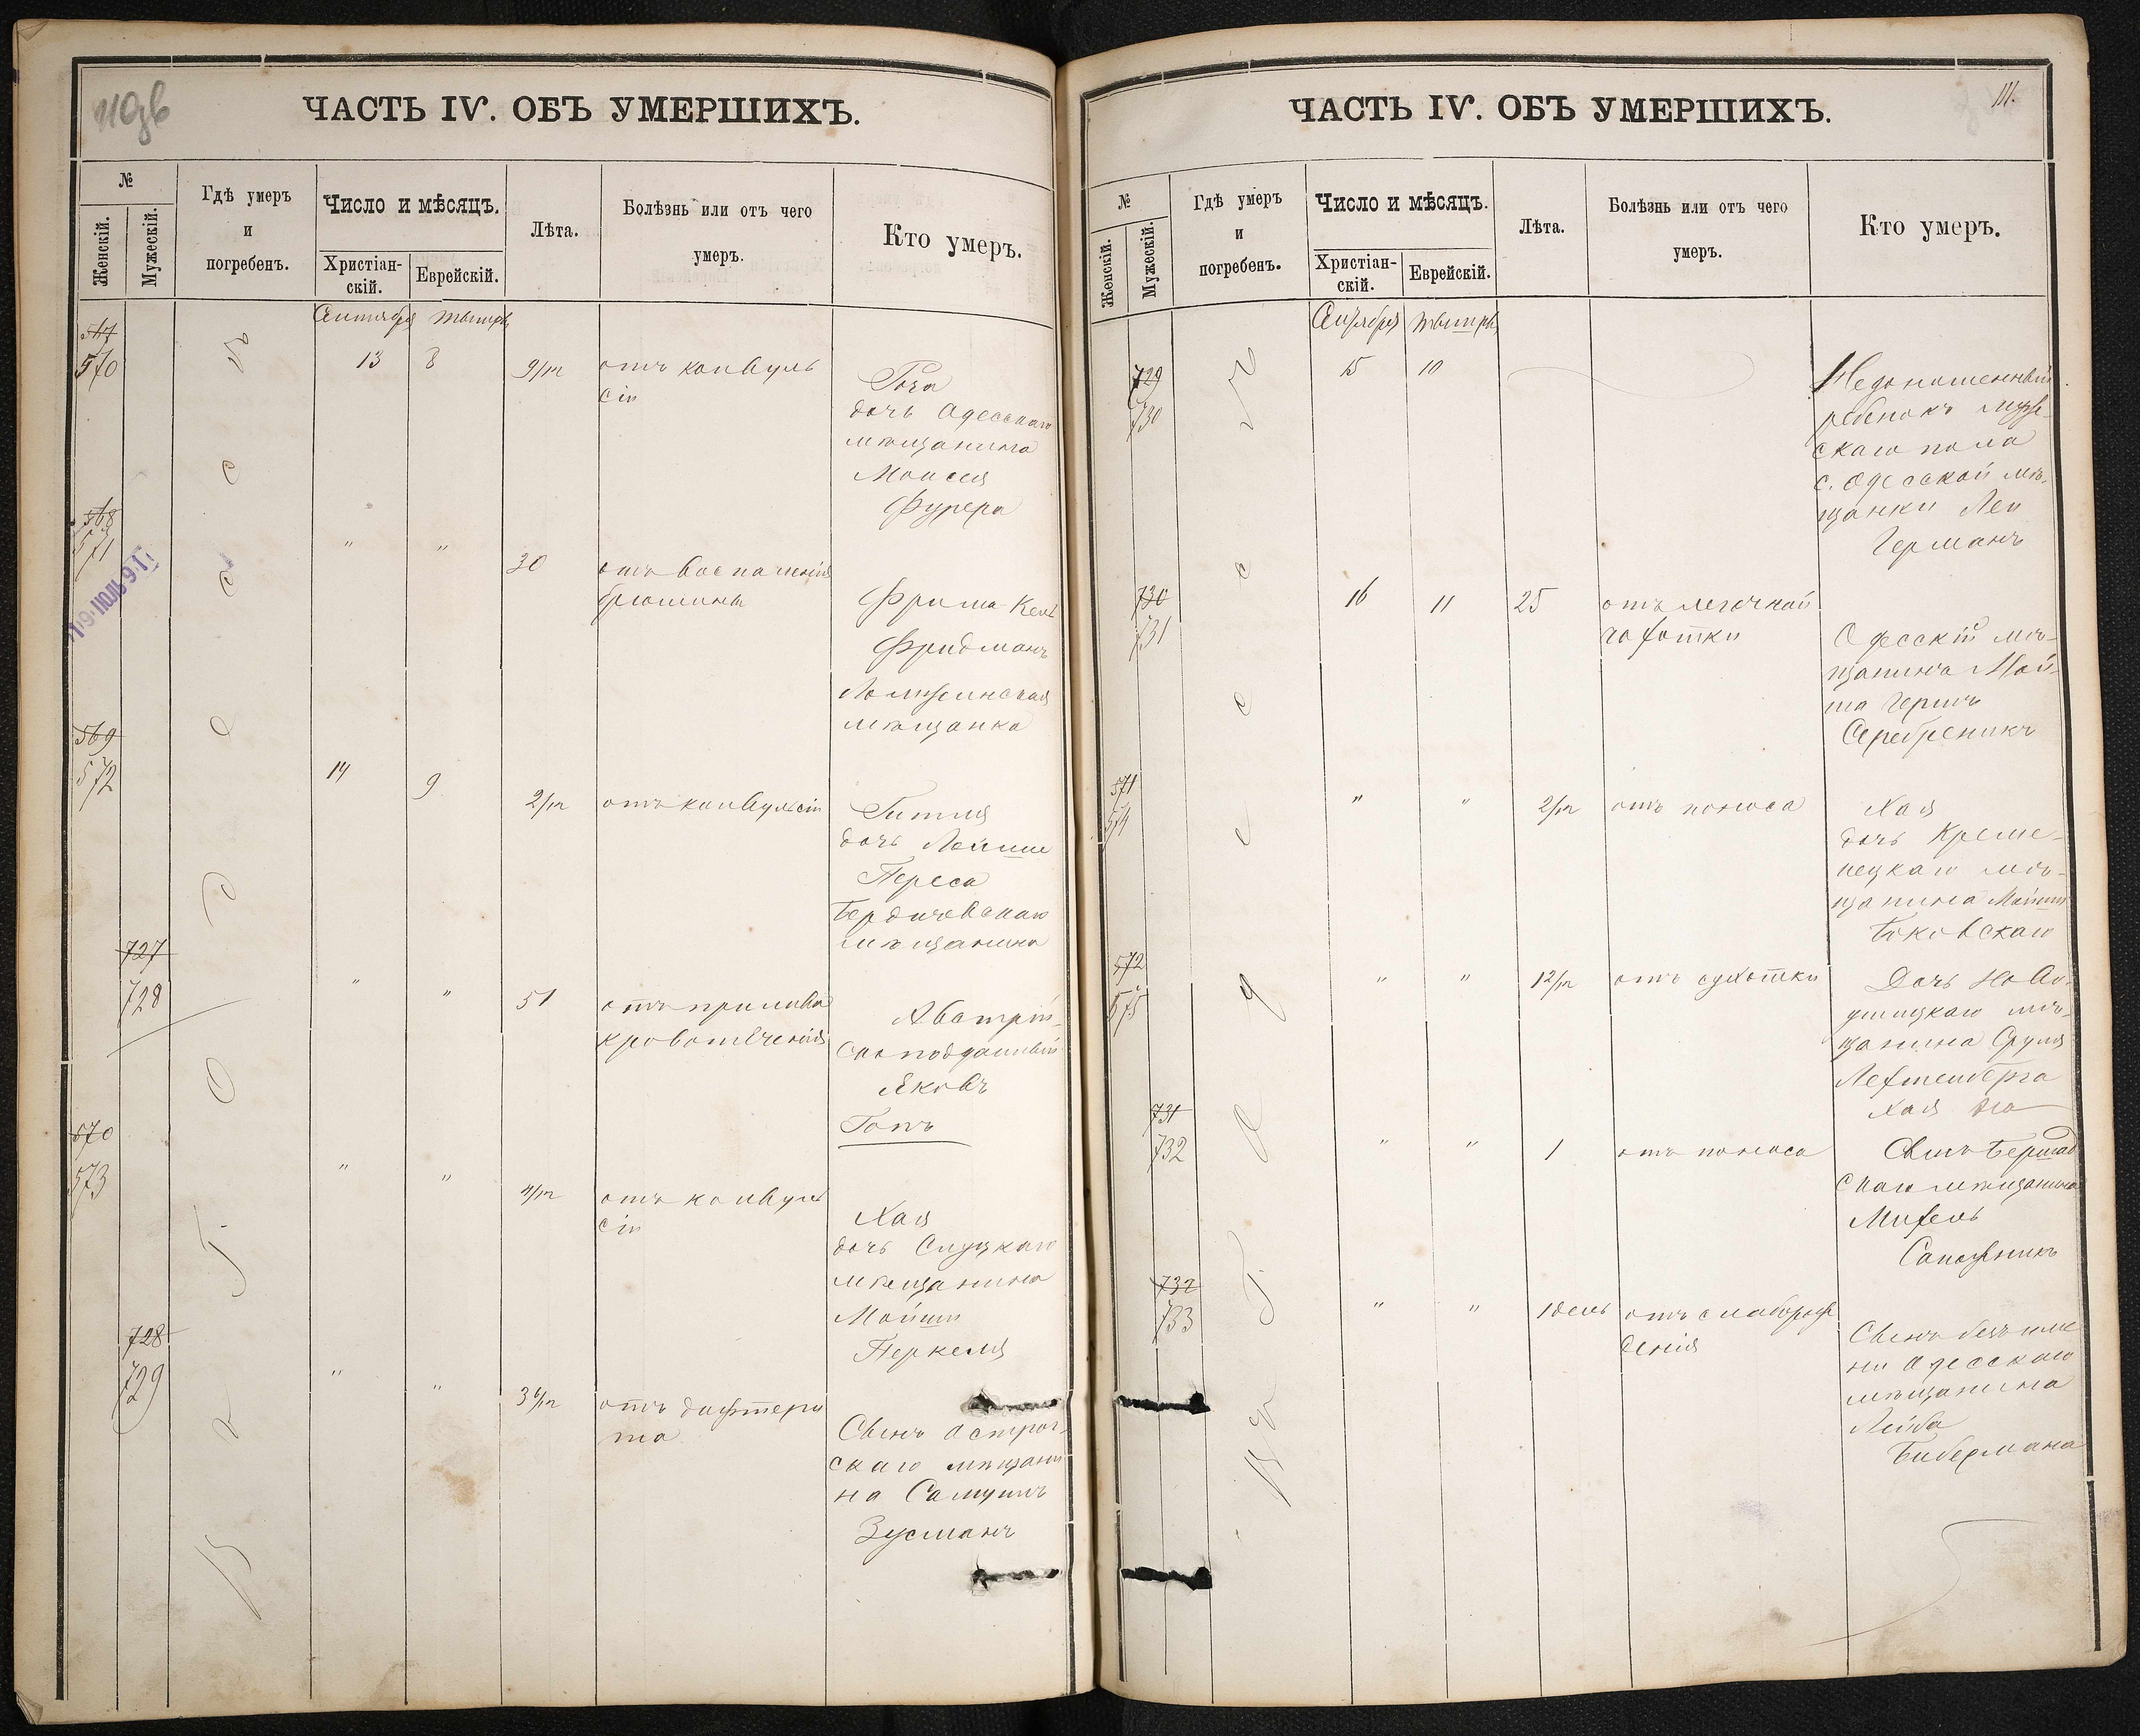 110об
ЧАСТЬ IV. ОБЪ УМЕРШИХЪ.
№
Женскій.
Мужескій.
Гдѣ умеръ
и
погребенъ.
Число и мѣсяцъ.
Христіан-
скій.
Еврейскій.
Лѣта.
Болѣзнь или отъ чего
умеръ.
Кто умеръ.
Сентября
567
570
13
8
9/м
отъ конвуль
сіи
дочь Одесскаго
мѣщанина
Моисея
Фурера
568
571
"
"
30
отъ воспаленія
брюшины
Фрима
Фридманъ
мѣщанка
569
572
14
9
2/м
отъ конвульсіи
Гитля
дочь
Переса
Бердичевскаго
мѣщанина
727
728
"
"
51
отъ прилива
кровотеченія
Австрій-
Яковъ
570
573
"
"
4/м
отъ конвуль
сіи
Хая
дочь Слуцкаго
мѣщанина
Мойши
Перкеля
728
729
"
"
отъ дифтери
та
Сынъ Острог-
скаго мѣщани
на Самуилъ
Зусманъ
Въ г. Одессѣ
111.
ЧАСТЬ IV. ОБЪ УМЕРШИХЪ.
№
Женскій.
Мужескій.
Гдѣ умеръ
и
погребенъ.
Число и мѣсяцъ.
Христіан-
скій.
Еврейскій.
Лѣта.
Болѣзнь или отъ чего
умеръ.
Кто умеръ.
Сентября
729
730
15
10
Недоношенный
ребенокъ муже-
скаго пола
с. Одесской мѣ-
щанки Леи
Германъ
730
731
16
11
25
отъ легочной
чахотки
Одесскій мѣ-
щанинъ Мой-
ша Гершъ
Серебреникъ
571
574
"
"
2/м
отъ поноса
Хая
дочь Креме-
нецкаго мѣ-
щанина Мойши
Боковскаго
572
575
"
"
12/м
отъ сухотки
Дочь Ново-
ушицкаго мѣ-
щанина Сруля
Лехтенберга
Хая
731
732
"
"
1
отъ поноса
Сынъ Бершад
скаго мѣщанина
Михель
Сапожникъ
732
733
"
"
1 день
отъ слаборож
денія
Сынъ безъ име
ни Одесскаго
мѣщанина
Лейба
Бибермана
Въ г. Одессѣ